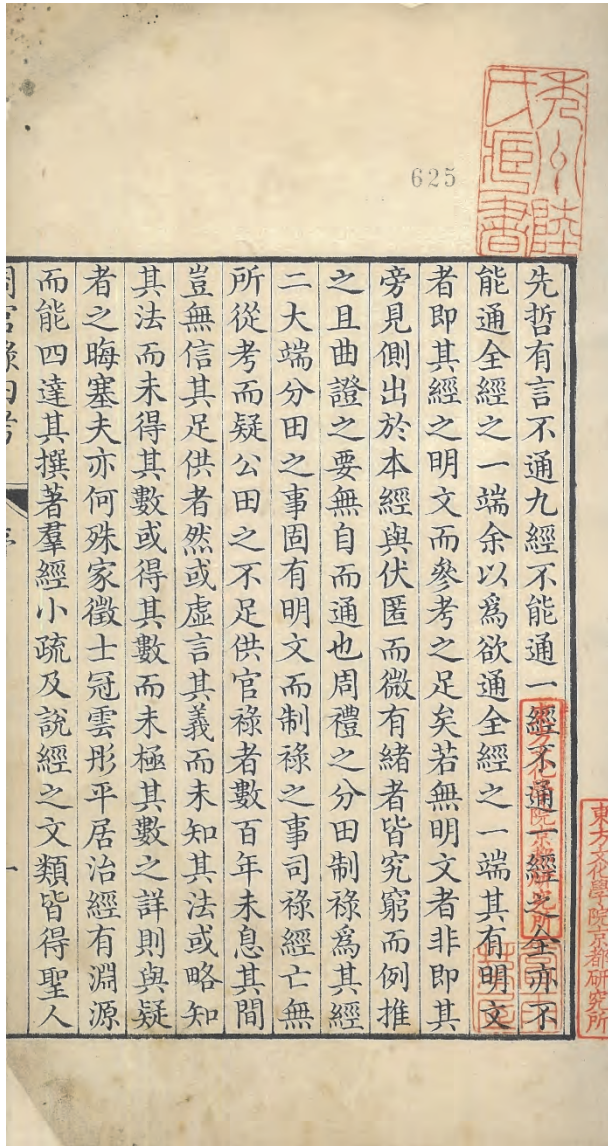 625
先哲有言不通九經不能通一經不通一經之全亦不
能通全經之一端余以爲欲通全經之一端其有明文
者即其經之明文而參考之足矣若無明文者非即其
旁見側出於本經與伏匿而微有緒者皆究窮而例推
之且曲證之要無自而通也周禮之分田制祿爲其經
二大端分田之事固有明文而制祿之事司祿經亡無
所從考而疑公田之不足供官祿者數百年未息其間
豈無信其足供者然或虛言其義而未知其法或略知
其法而未得其數或得其數而未極其數之詳則與疑
者之晦塞夫亦何殊家徵士冠雲彤平居治經有淵源
而能四達其撰著羣經小疏及說經之文類皆得聖人
周官祿田考
序
一
秀州陸氏藏書
東方文化學院京都研究所
東方文化學院京都研究所